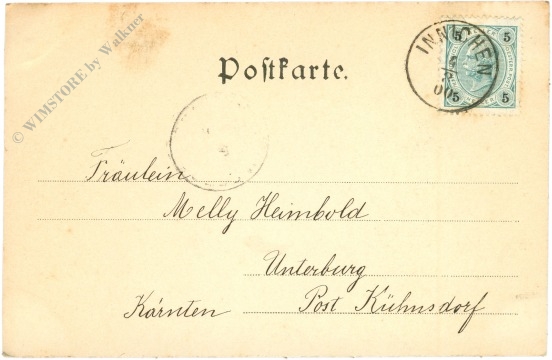 © WIMSTORE by Walkner
Postkarte.
INNICHEN
5 5
5 5
Fräulein
Melly Heimbold
Unterburg
Kärnten Post Kühnsdorf